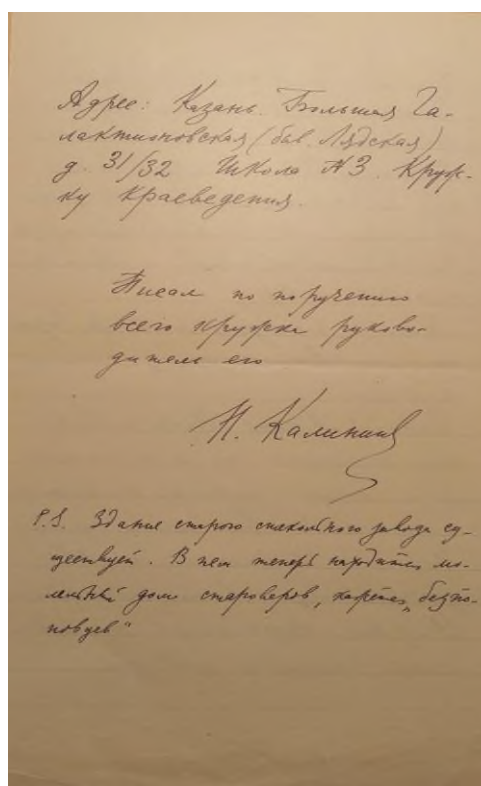 Адрес: Казань. Большая Га-
лактионовская (быв. Лядская)
д. 31/32 Школа №3. Круж-
ку краеведения.
Писал по поручению
всего кружка руково-
дитель его
Н. Калинин
P.S. Здание старого стекольного завода су-
ществует. В нем теперь находится мо-
лельный дом староверов, кажется, „безпо-
повцев“